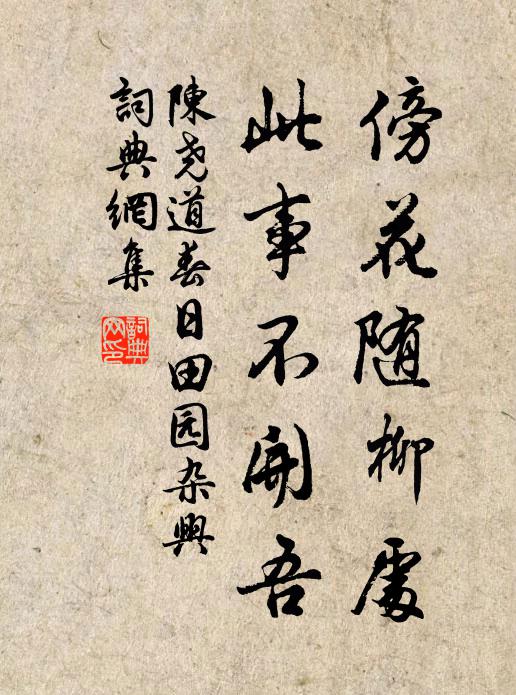 傍花随柳處
此事不開吾
陳尧道春日田园杂興
詞典網集
詞典
网印